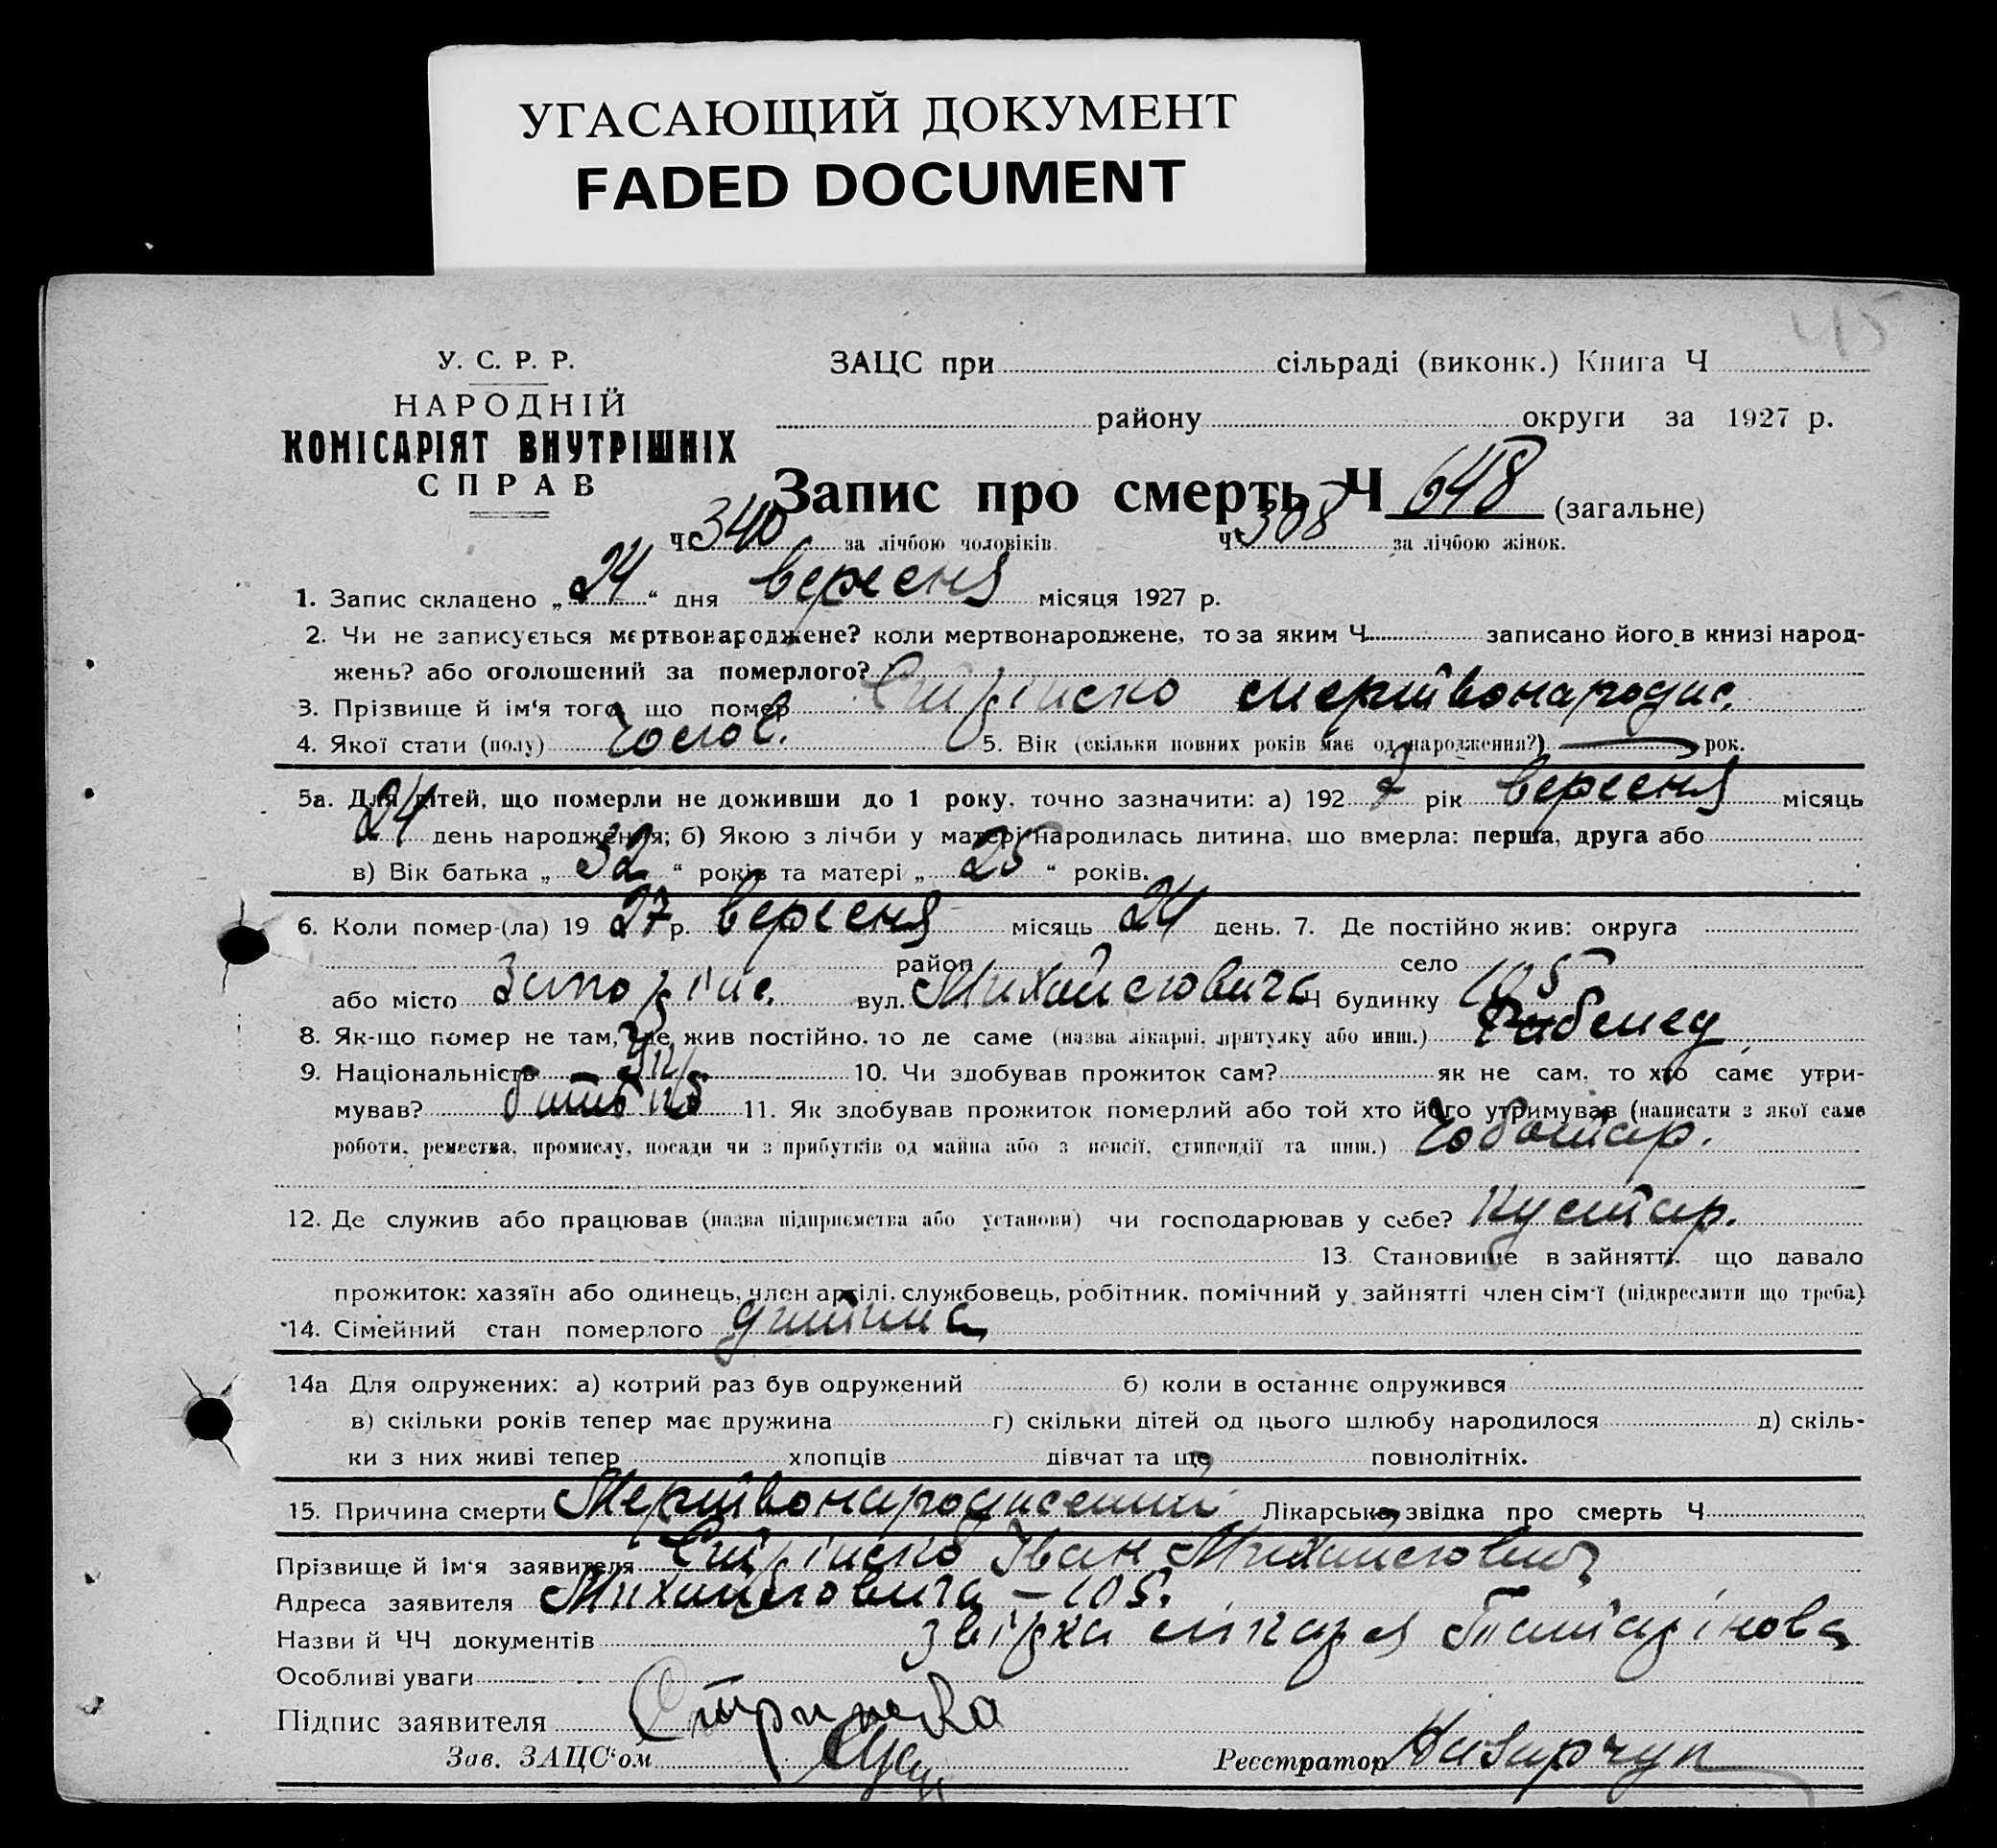 УГАСАЮЩИЙ ДОКУМЕНТ
FADED DOCUMENT
45
У. С. Р. Р.
НАРОДНІЙ
КОМІСАРІЯТ ВНУТРІШНІХ
СПРАВ
ЗАЦС при сільраді (виконк.) Книга Ч
району округи за 1927 р.
Запис про смерть Ч 648 (загальне)
Ч 340 за лічбою чоловіків. Ч 308 за лічбою жінок.
1. Запис складено „24“ дня вересня місяця 1927 р.
2. Чи не записується мертвонароджене? коли мертвонароджене, то за яким Ч записано його в книзі народ-
жень? або оголошений за померлого?
3. Прізвище й ім'я того, що помер мертвонародж.
4. Якої стати (полу) чолов. 5. Вік (скільки повних років має од народження?) — рок.
5а. Для дітей, що померли не доживши до 1 року, точно зазначити: а) 1927 рік вересня місяць
24 день народження; б) Якою з лічби у матері народилась дитина, що вмерла: перша, друга або
в) Вік батька „32“ років та матері „25“ років.
6. Коли помер-(ла) 1927 р. вересня місяць 24 день. 7. Де постійно жив: округа
район село
або місто Запоріж. вул. Михайловича Ч будинку 105
8. Як-що помер не там, де жив постійно, то де саме (назва лікарні, притулку або инш.)
9. Національність Укр 10. Чи здобував прожиток сам? як не сам, то хто саме утри-
мував? батько 11. Як здобував прожиток померлий або той хто його утримував (написати з якої саме
роботи, ремества, промислу, посади чи з прибутків од майна або з пенсії, стипендії та инш.) Чоботар.
12. Де служив або працював (назва підприємства або установи) чи господарював у себе? Кустар.
13. Становище в зайнятті, що давало
прожиток: хазяїн або одинець, член артілі, службовець, робітник, помічний у зайнятті член сім'ї (підкреслити що треба)
14. Сімейний стан померлого дитина
14а Для одружених: а) котрий раз був одружений б) коли в останнє одружився
в) скільки років тепер має дружина г) скільки дітей од цього шлюбу народилося д) скіль-
ки з них живі тепер хлопців дівчат та ще повнолітніх.
15. Причина смерти Мертвонароджений Лікарська звідка про смерть Ч
Прізвище й ім'я заявителя Іван Михайлович
Адреса заявителя Михайловича – 105.
Назви й ЧЧ документів звідка лікаря Татарінова
Особливі уваги
Підпис заявителя
Зав. ЗАЦС'ом
Реєстратор